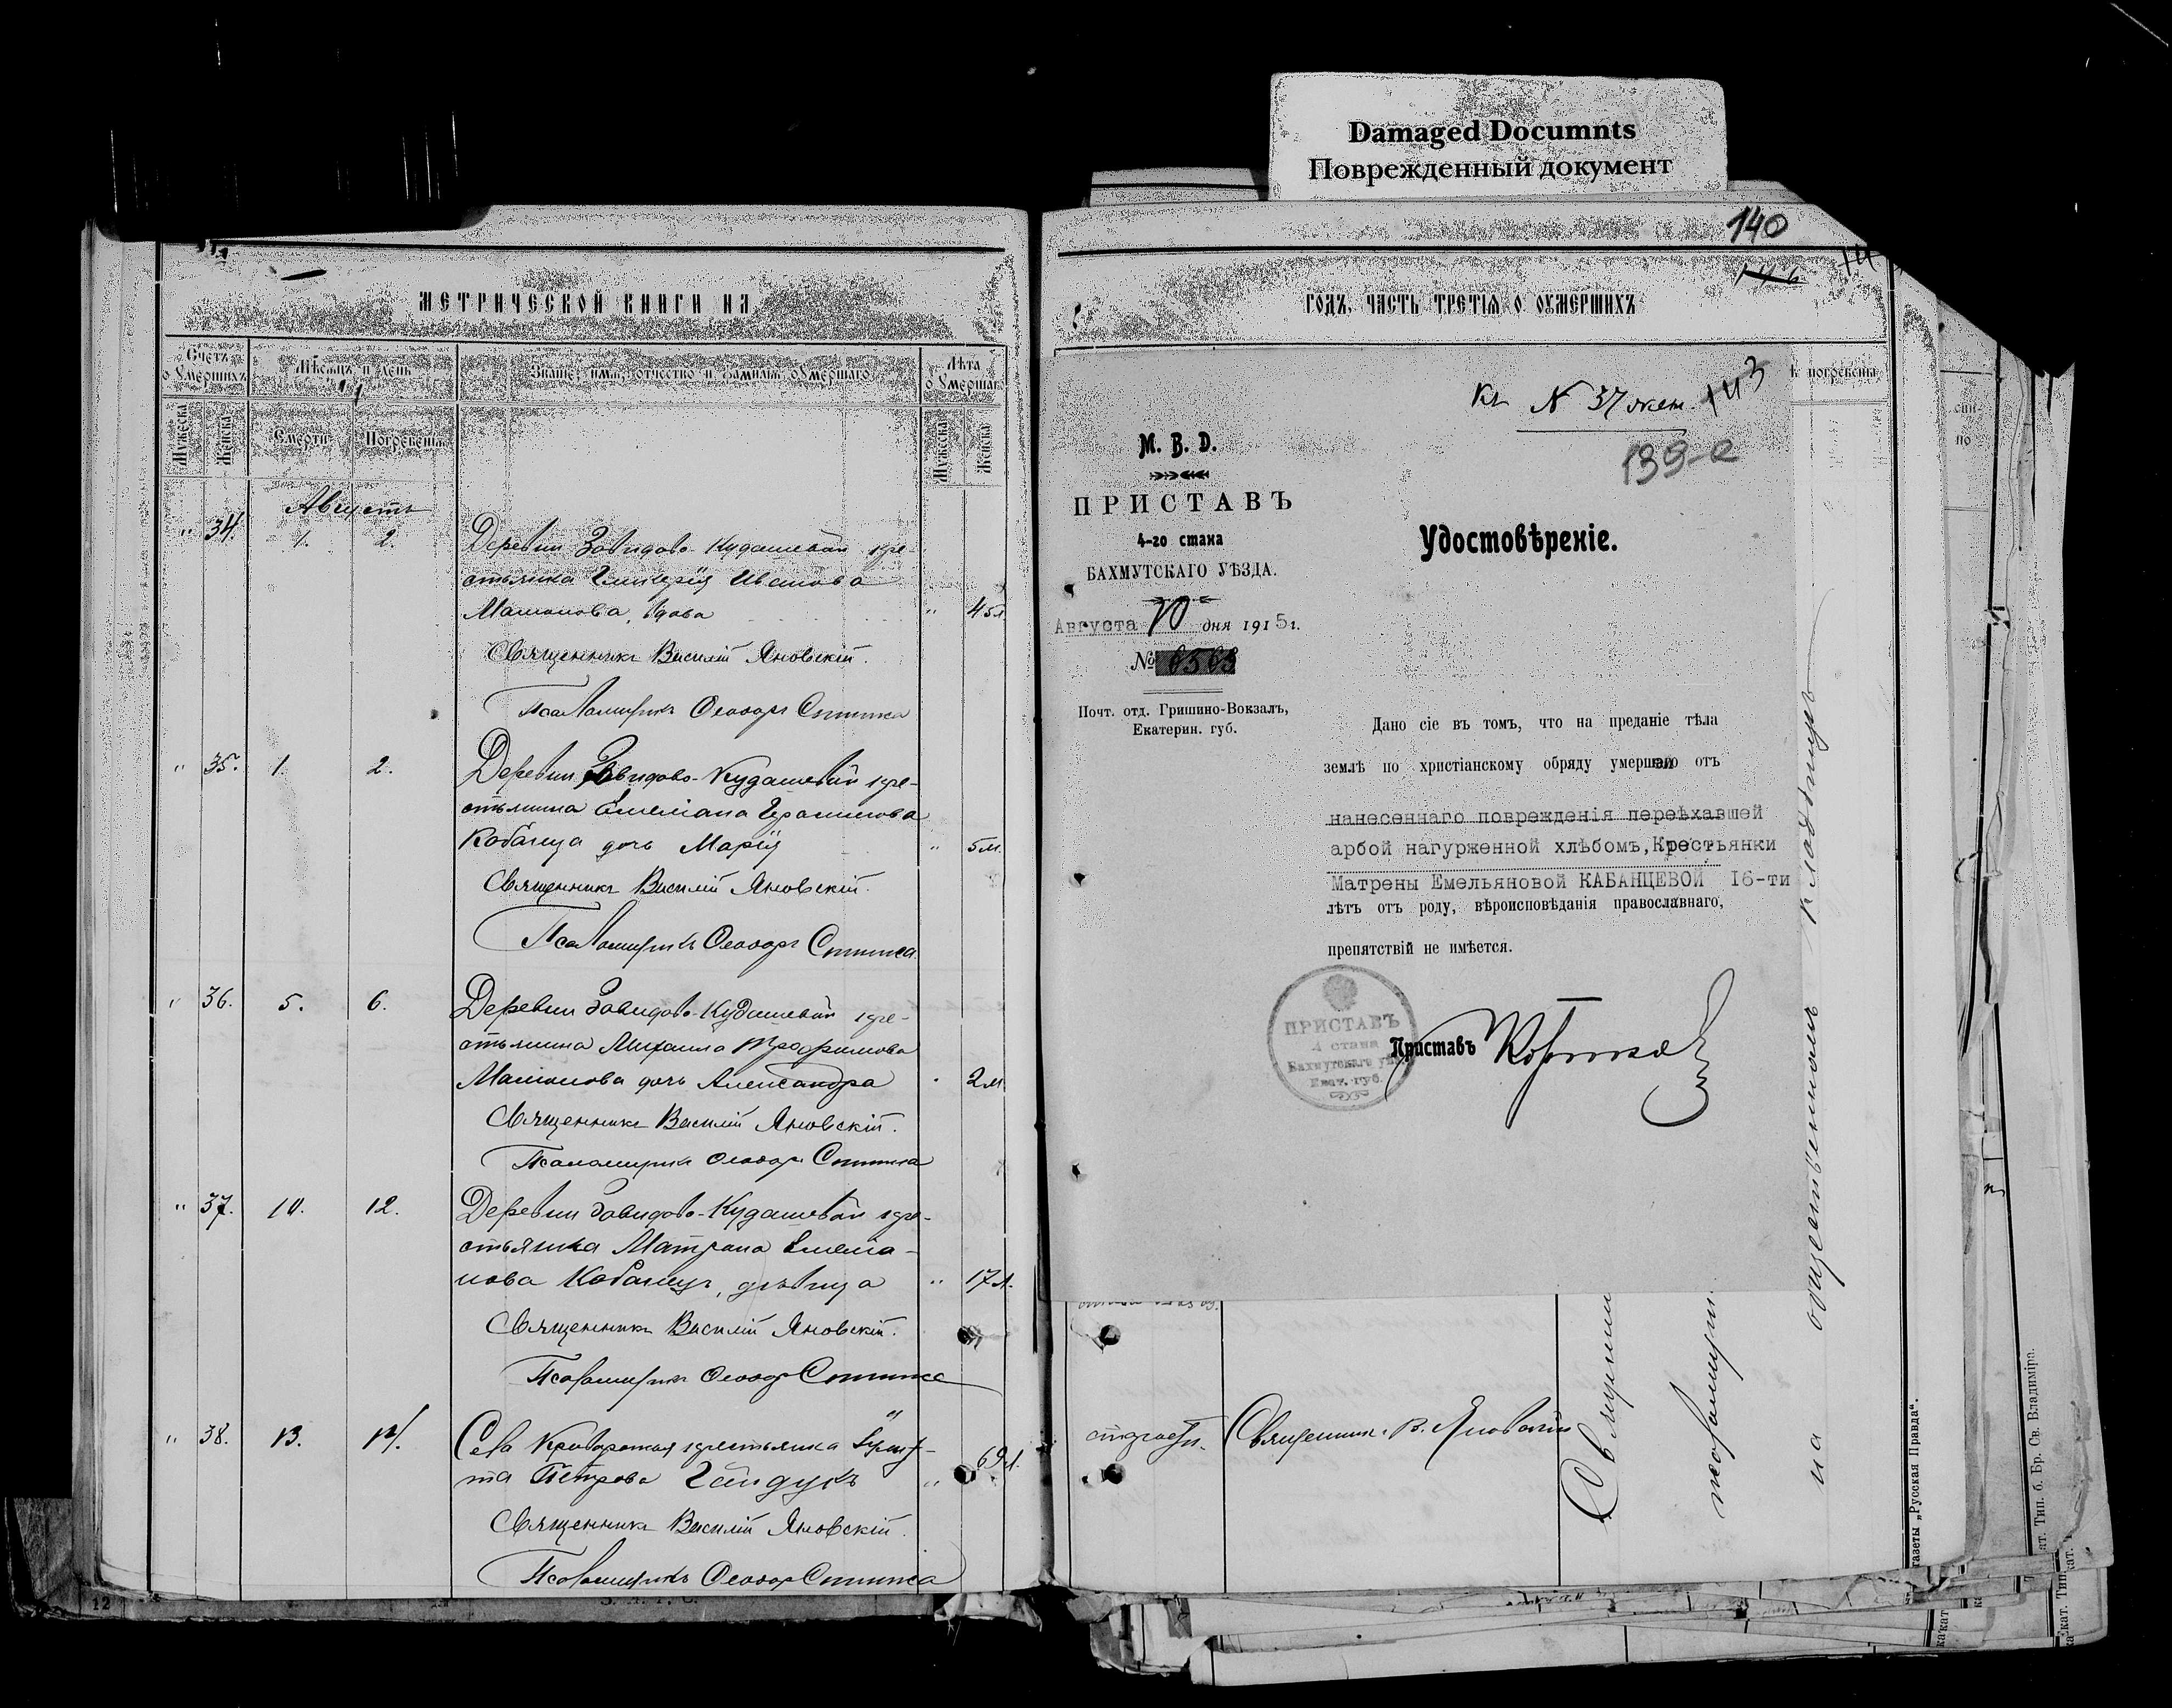 Damaged Documnts
Поврежденный документ
МЕТРИЧЕСКОЙ КНИГИ НА
Счетъ о умершихъ
Мѣсяцъ и день
Званіе, имя, отчество и фамилія умершаго
Лѣта умершаго
Мужеска
Женска
Смерти
Погребенія
Мужеска
Женска
Августъ
" 34. 1. 2. Деревни Давидово-Кудашевой кре-
стьянка Ивanова
Мамонова, вдова " 45л.
Священникъ Василій Яновскій.
Псаломщикъ Ѳеодоръ
" 35. 1. 2. Деревни Давидово-Кудашевой кре-
стьянина Емеліана Герасимова
Кобанца дочь Марія " 5м.
Священникъ Василій Яновскій.
Псаломщикъ Ѳеодоръ
" 36. 5. 6. Деревни Давидово-Кудашевой кре-
стьянина Михаила Трофимова
Мамонова дочь Александра " 2м.
Священникъ Василій Яновскій.
Псаломщикъ Ѳеодоръ
" 37. 10. 12. Деревни Давидово-Кудашевой кре-
стьянка Матрона Емеліа-
нова Кобанецъ, дѣвица " 17л.
Священникъ Василій Яновскій.
Псаломщикъ Ѳеодоръ
" 38. 13. 14. Села Криворожья крестьянка
Петрова Гайдукъ " 69л.
Священникъ Василій Яновскій.
Псаломщикъ Ѳеодоръ
12
140
146
ГОДЪ, ЧАСТЬ ТРЕТІЯ О ОУМЕРШИХЪ
погребены
Къ N 37 жен. 143
139-а
М. В. Д.
ПРИСТАВЪ
4-го стана
БАХМУТСКАГО УѢЗДА.
Августа 10 дня 1915г.
№ 6563
Почт. отд. Гришино-Вокзалъ,
Екатерин. губ.
Удостовѣреніе.
Дано сіе въ томъ, что на преданіе тѣла
землѣ по христіанскому обряду умершей отъ
нанесеннаго поврежденія переѣхавшей
арбой нагурженной хлѣбомъ, Крестьянки
Матрены Емельяновой КАБАНЦЕВОЙ 16-ти
лѣтъ отъ роду, вѣроисповѣданія православнаго,
препятствій не имѣется.
Приставъ
ПРИСТАВЪ
4 стана
Бахмутскаго уѣз.
Екат. губ.
Священник. В. Яновскій
на общественномъ кладбищѣ
газеты „Русская Правда“.
Тип. б. Бр. Св. Владиміра.
Екат. Тип.